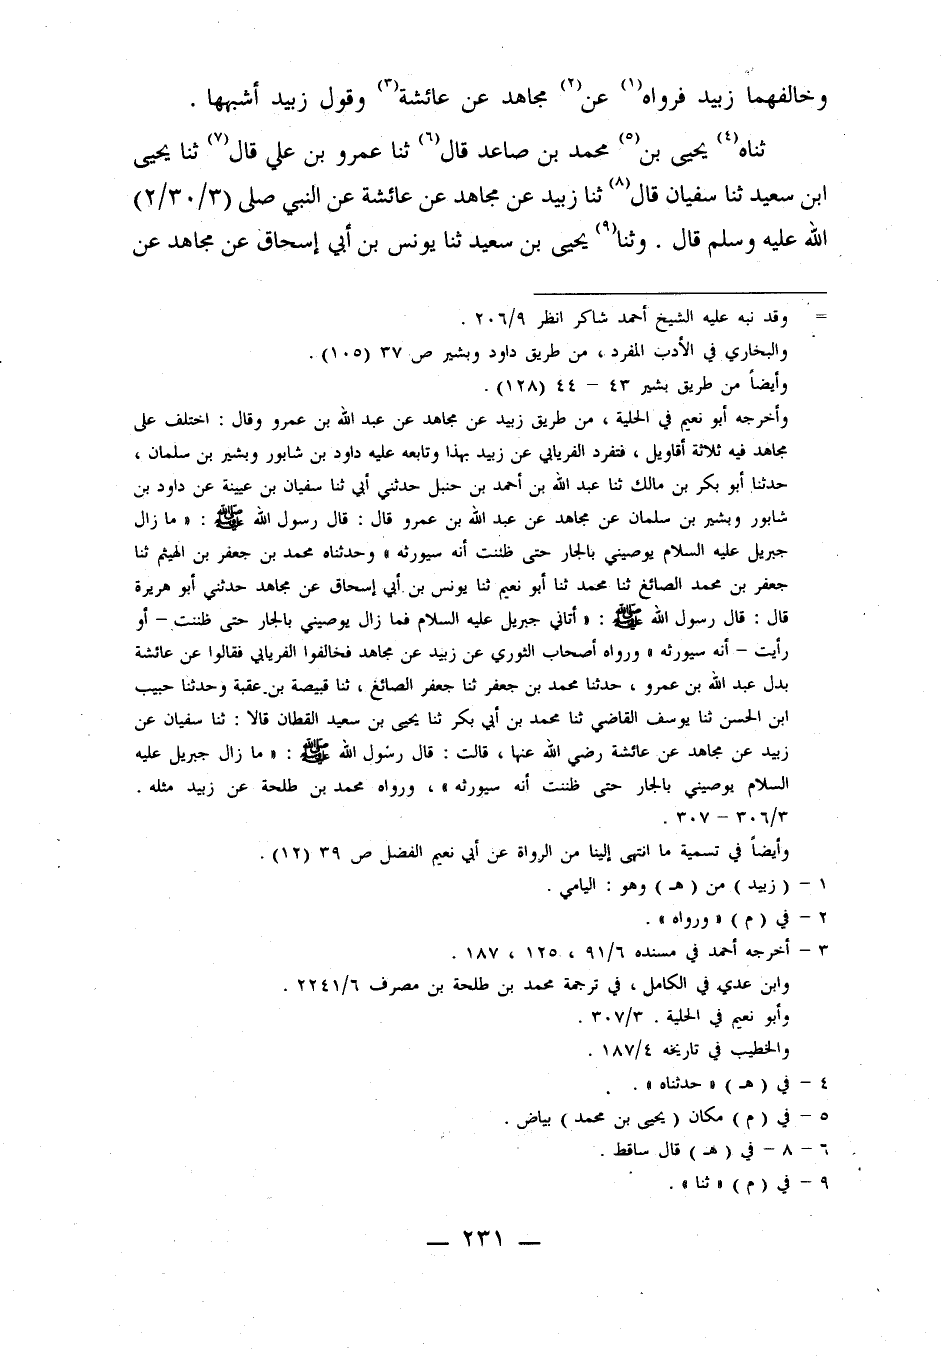 وخالفهما زبيد فرواه(١) عن(٢) مجاهد عن عائشة(٣) وقول زبيد أشبهها .
ثناه(٤) يحيى بن(٥) محمد بن صاعد قال(٦) ثنا عمرو بن علي قال(٧) ثنا يحيى
ابن سعيد ثنا سفيان قال(٨) ثنا زبيد عن مجاهد عن عائشة عن النبي صلى (٢/٣٠/٣)
الله عليه وسلم قال . وثنا(٩) يحيى بن سعيد ثنا يونس بن أبي إسحاق عن مجاهد عن
= وقد نبه عليه الشيخ أحمد شاكر انظر ٢٠٦/٩ .
والبخاري في الأدب المفرد ، من طريق داود وبشير ص ٣٧ (١٠٥) .
وأيضاً من طريق بشير ٤٣ – ٤٤ (١٢٨) .
وأخرجه أبو نعيم في الحلية ، من طريق زبيد عن مجاهد عن عبد الله بن عمرو وقال : اختلف على
مجاهد فيه ثلاثة أقاويل ، فتفرد الفريابي عن زبيد بهذا وتابعه عليه داود بن شابور وبشير بن سلمان ،
حدثنا أبو بكر بن مالك ثنا عبد الله بن أحمد بن حنبل حدثني أبي ثنا سفيان بن عيينة عن داود بن
شابور وبشير بن سلمان عن مجاهد عن عبد الله بن عمرو قال : قال رسول الله ﷺ : « ما زال
جبريل عليه السلام يوصيني بالجار حتى ظننت أنه سيورثه » وحدثناه محمد بن جعفر بن الهيثم ثنا
جعفر بن محمد الصائغ ثنا محمد ثنا أبو نعيم ثنا يونس بن أبي إسحاق عن مجاهد حدثني أبو هريرة
قال : قال رسول الله ﷺ : « أتاني جبريل عليه السلام فما زال يوصيني بالجار حتى ظننت – أو
رأيت – أنه سيورثه » ورواه أصحاب الثوري عن زبيد عن مجاهد فخالفوا الفريابي فقالوا عن عائشة
بدل عبد الله بن عمرو ، حدثنا محمد بن جعفر ثنا جعفر الصائغ ، ثنا قبيصة بن عقبة وحدثنا حبيب
ابن الحسن ثنا يوسف القاضي ثنا محمد بن أبي بكر ثنا يحيى بن سعيد القطان قالا : ثنا سفيان عن
زبيد عن مجاهد عن عائشة رضي الله عنها ، قالت : قال رسول الله ﷺ : « ما زال جبريل عليه
السلام يوصيني بالجار حتى ظننت أنه سيورثه » ، ورواه محمد بن طلحة عن زبيد مثله .
٣٠٦/٣ – ٣٠٧ .
وأيضاً في تسمية ما انتهى إلينا من الرواة عن أبي نعيم الفضل ص ٣٩ (١٢) .
١ – ( زبيد ) من ( هـ ) وهو : اليامي .
٢ – في ( م ) « ورواه » .
٣ – أخرجه أحمد في مسنده ٩١/٦ ، ١٢٥ ، ١٨٧ .
وابن عدي في الكامل ، في ترجمة محمد بن طلحة بن مصرف ٢٢٤١/٦ .
وأبو نعيم في الحلية . ٣٠٧/٣ .
والخطيب في تاريخه ١٨٧/٤ .
٤ – في ( هـ ) « حدثناه » .
٥ – في ( م ) مكان ( يحيى بن محمد ) بياض .
٦ – ٨ – في ( هـ ) قال ساقط .
٩ – في ( م ) « ثنا » .
— ٢٣١ —